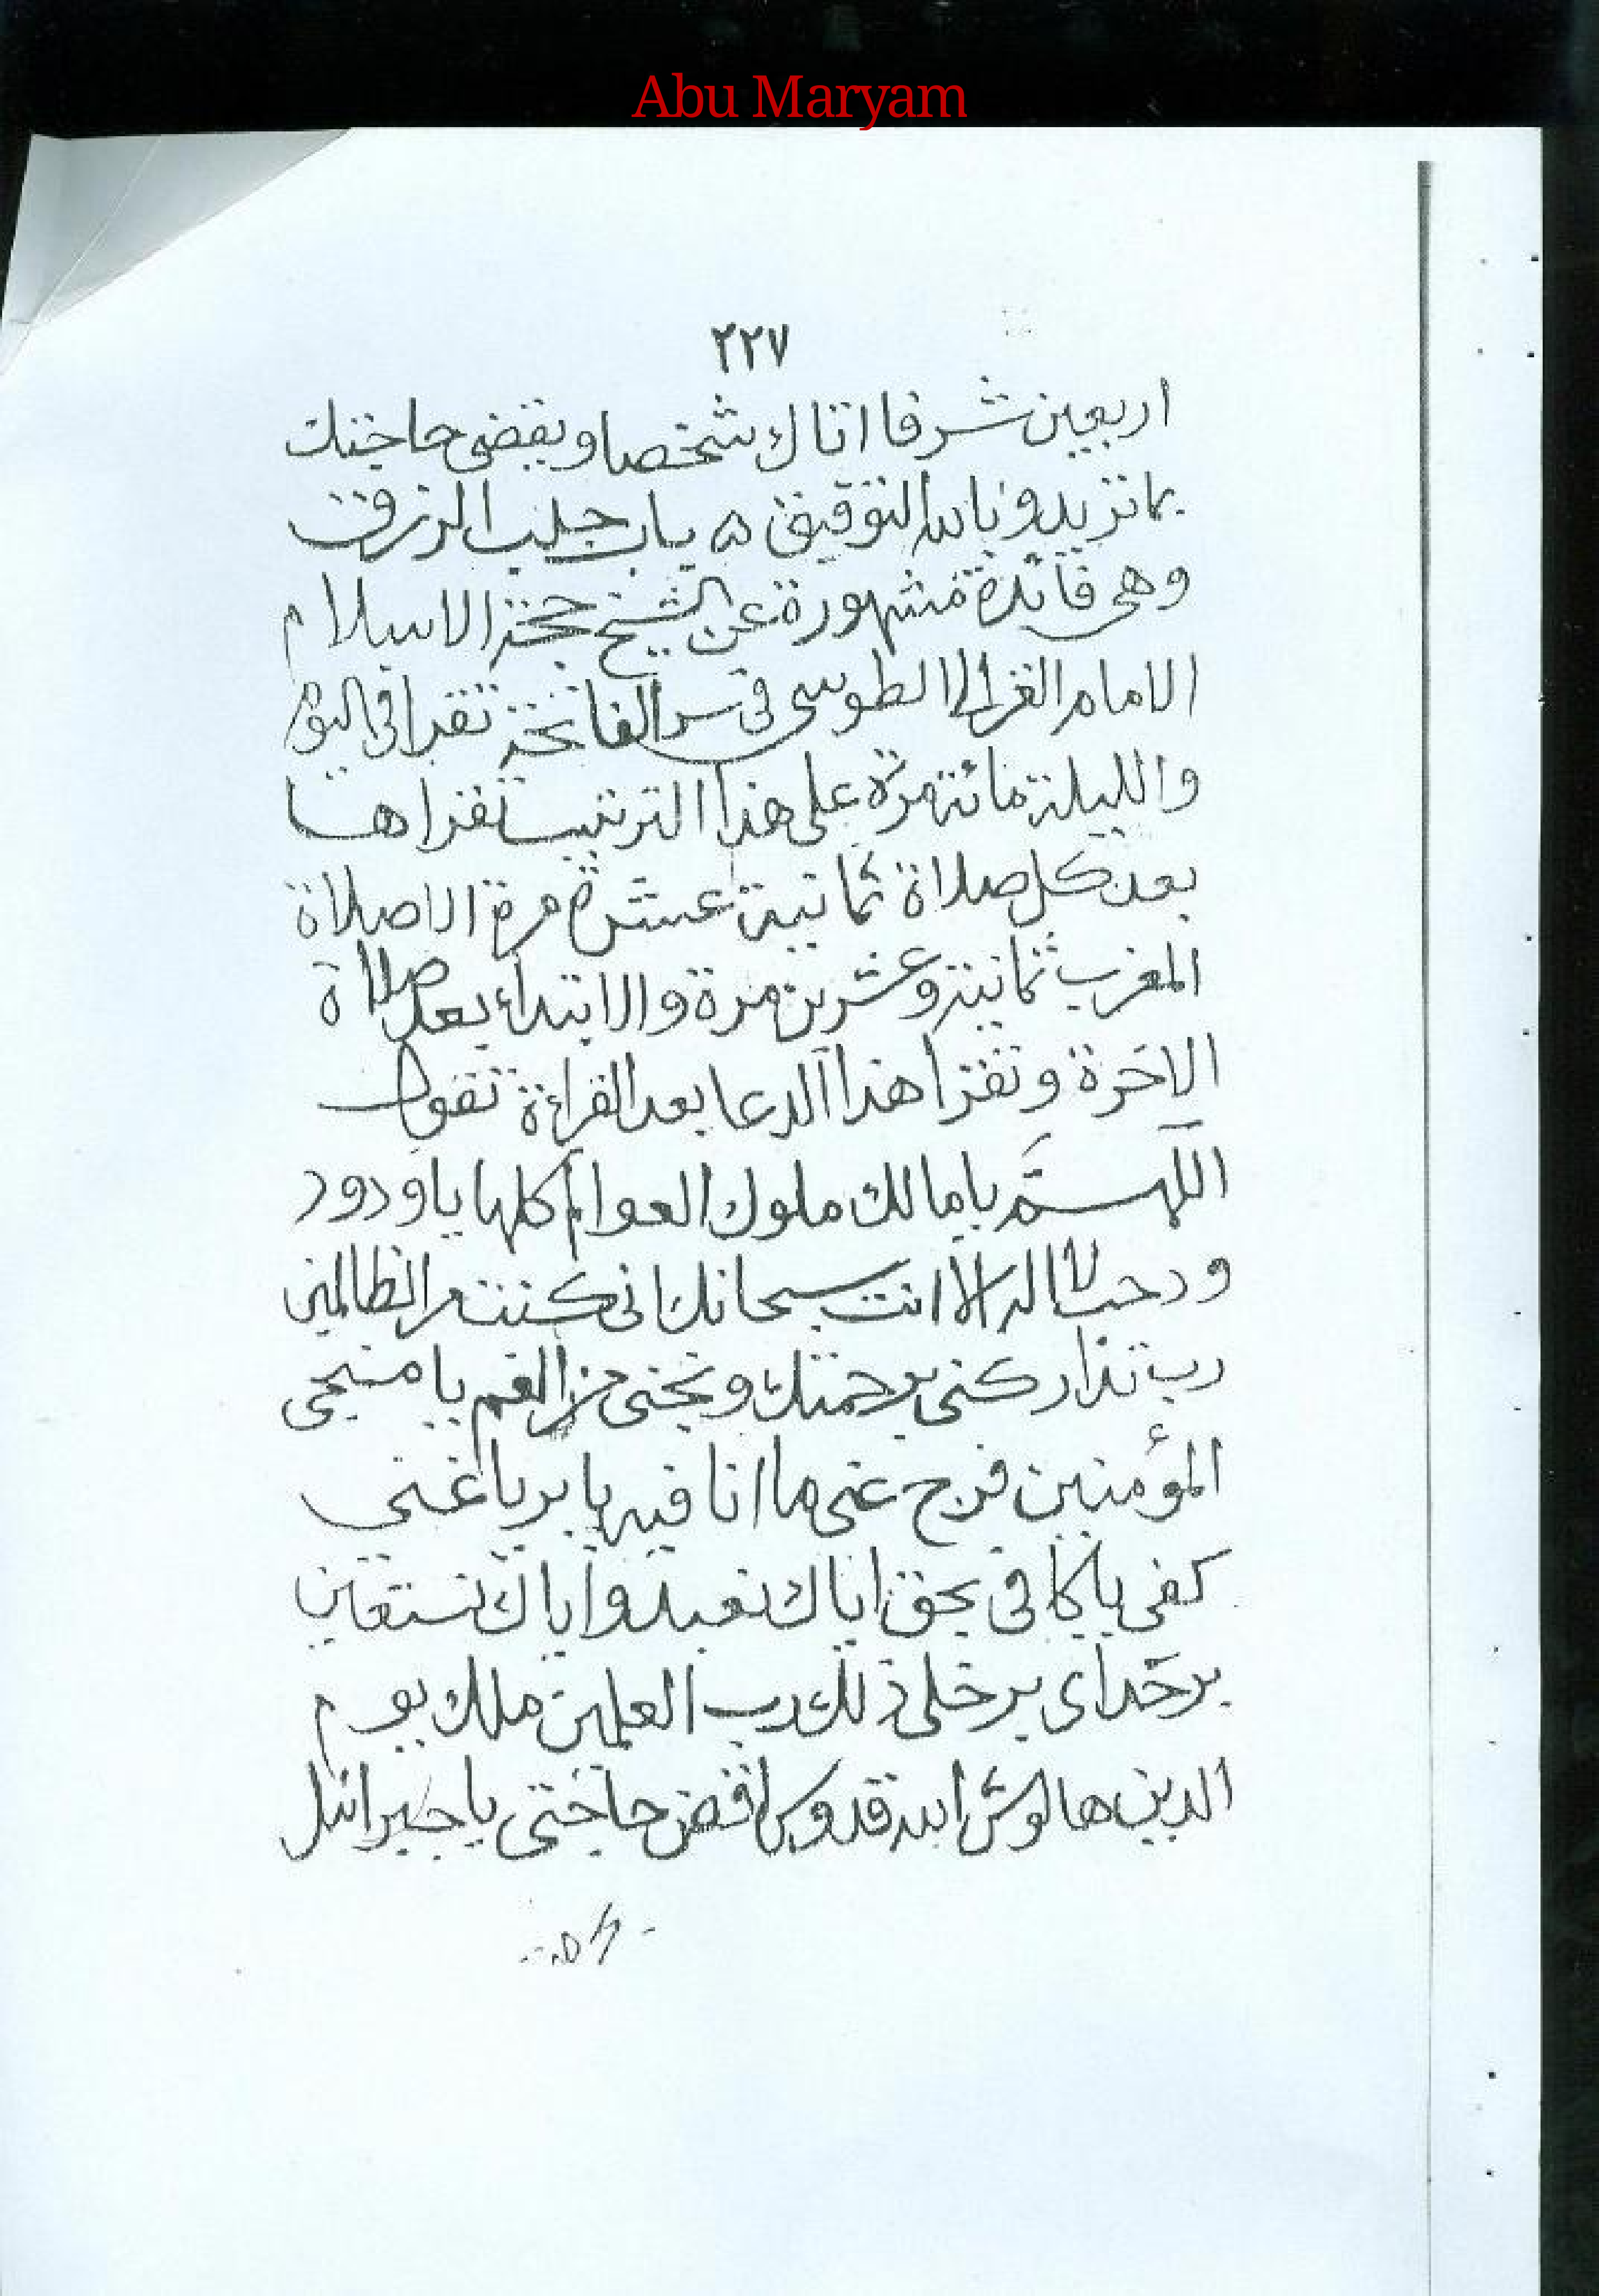 Abu Maryam
٢٢٧
اربعين شرفا اتاك شخصا ويقضى حاجتك
بما تريد وبالله التوفيق ه باب جلب الرزق
وهى فائدة مشهورة عن الشيخ حجة الاسلام
الامام الغزالى الطوسى فى سر الفاتحة تقرا فى اليوم
والليلة مائة مرة على هذا الترتيب تقراها
بعد كل صلاة ثمانية عشرة مرة الا صلاة
المغرب ثمانية وعشرين مرة والابتداء بعد صلاة
الاخرة وتقرا هذا الدعا بعد القراءة تقول
اللهم يا مالك ملوك العوالم كلها يا ودود
ودحب لا اله الا انت سبحانك انى كنت من الظالمين
رب تداركنى برحمتك ونجنى من الغم يا منجى
المؤمنين فرج عنى ما انا فيه يا بر يا غنى
كفى يا كافى بحق اياك نعبد واياك نستعين
برحداى برخلى ذلك رب العلمين ملك يوم
الدين هالوش ابد قدوس اقض حاجتى يا جبرائل